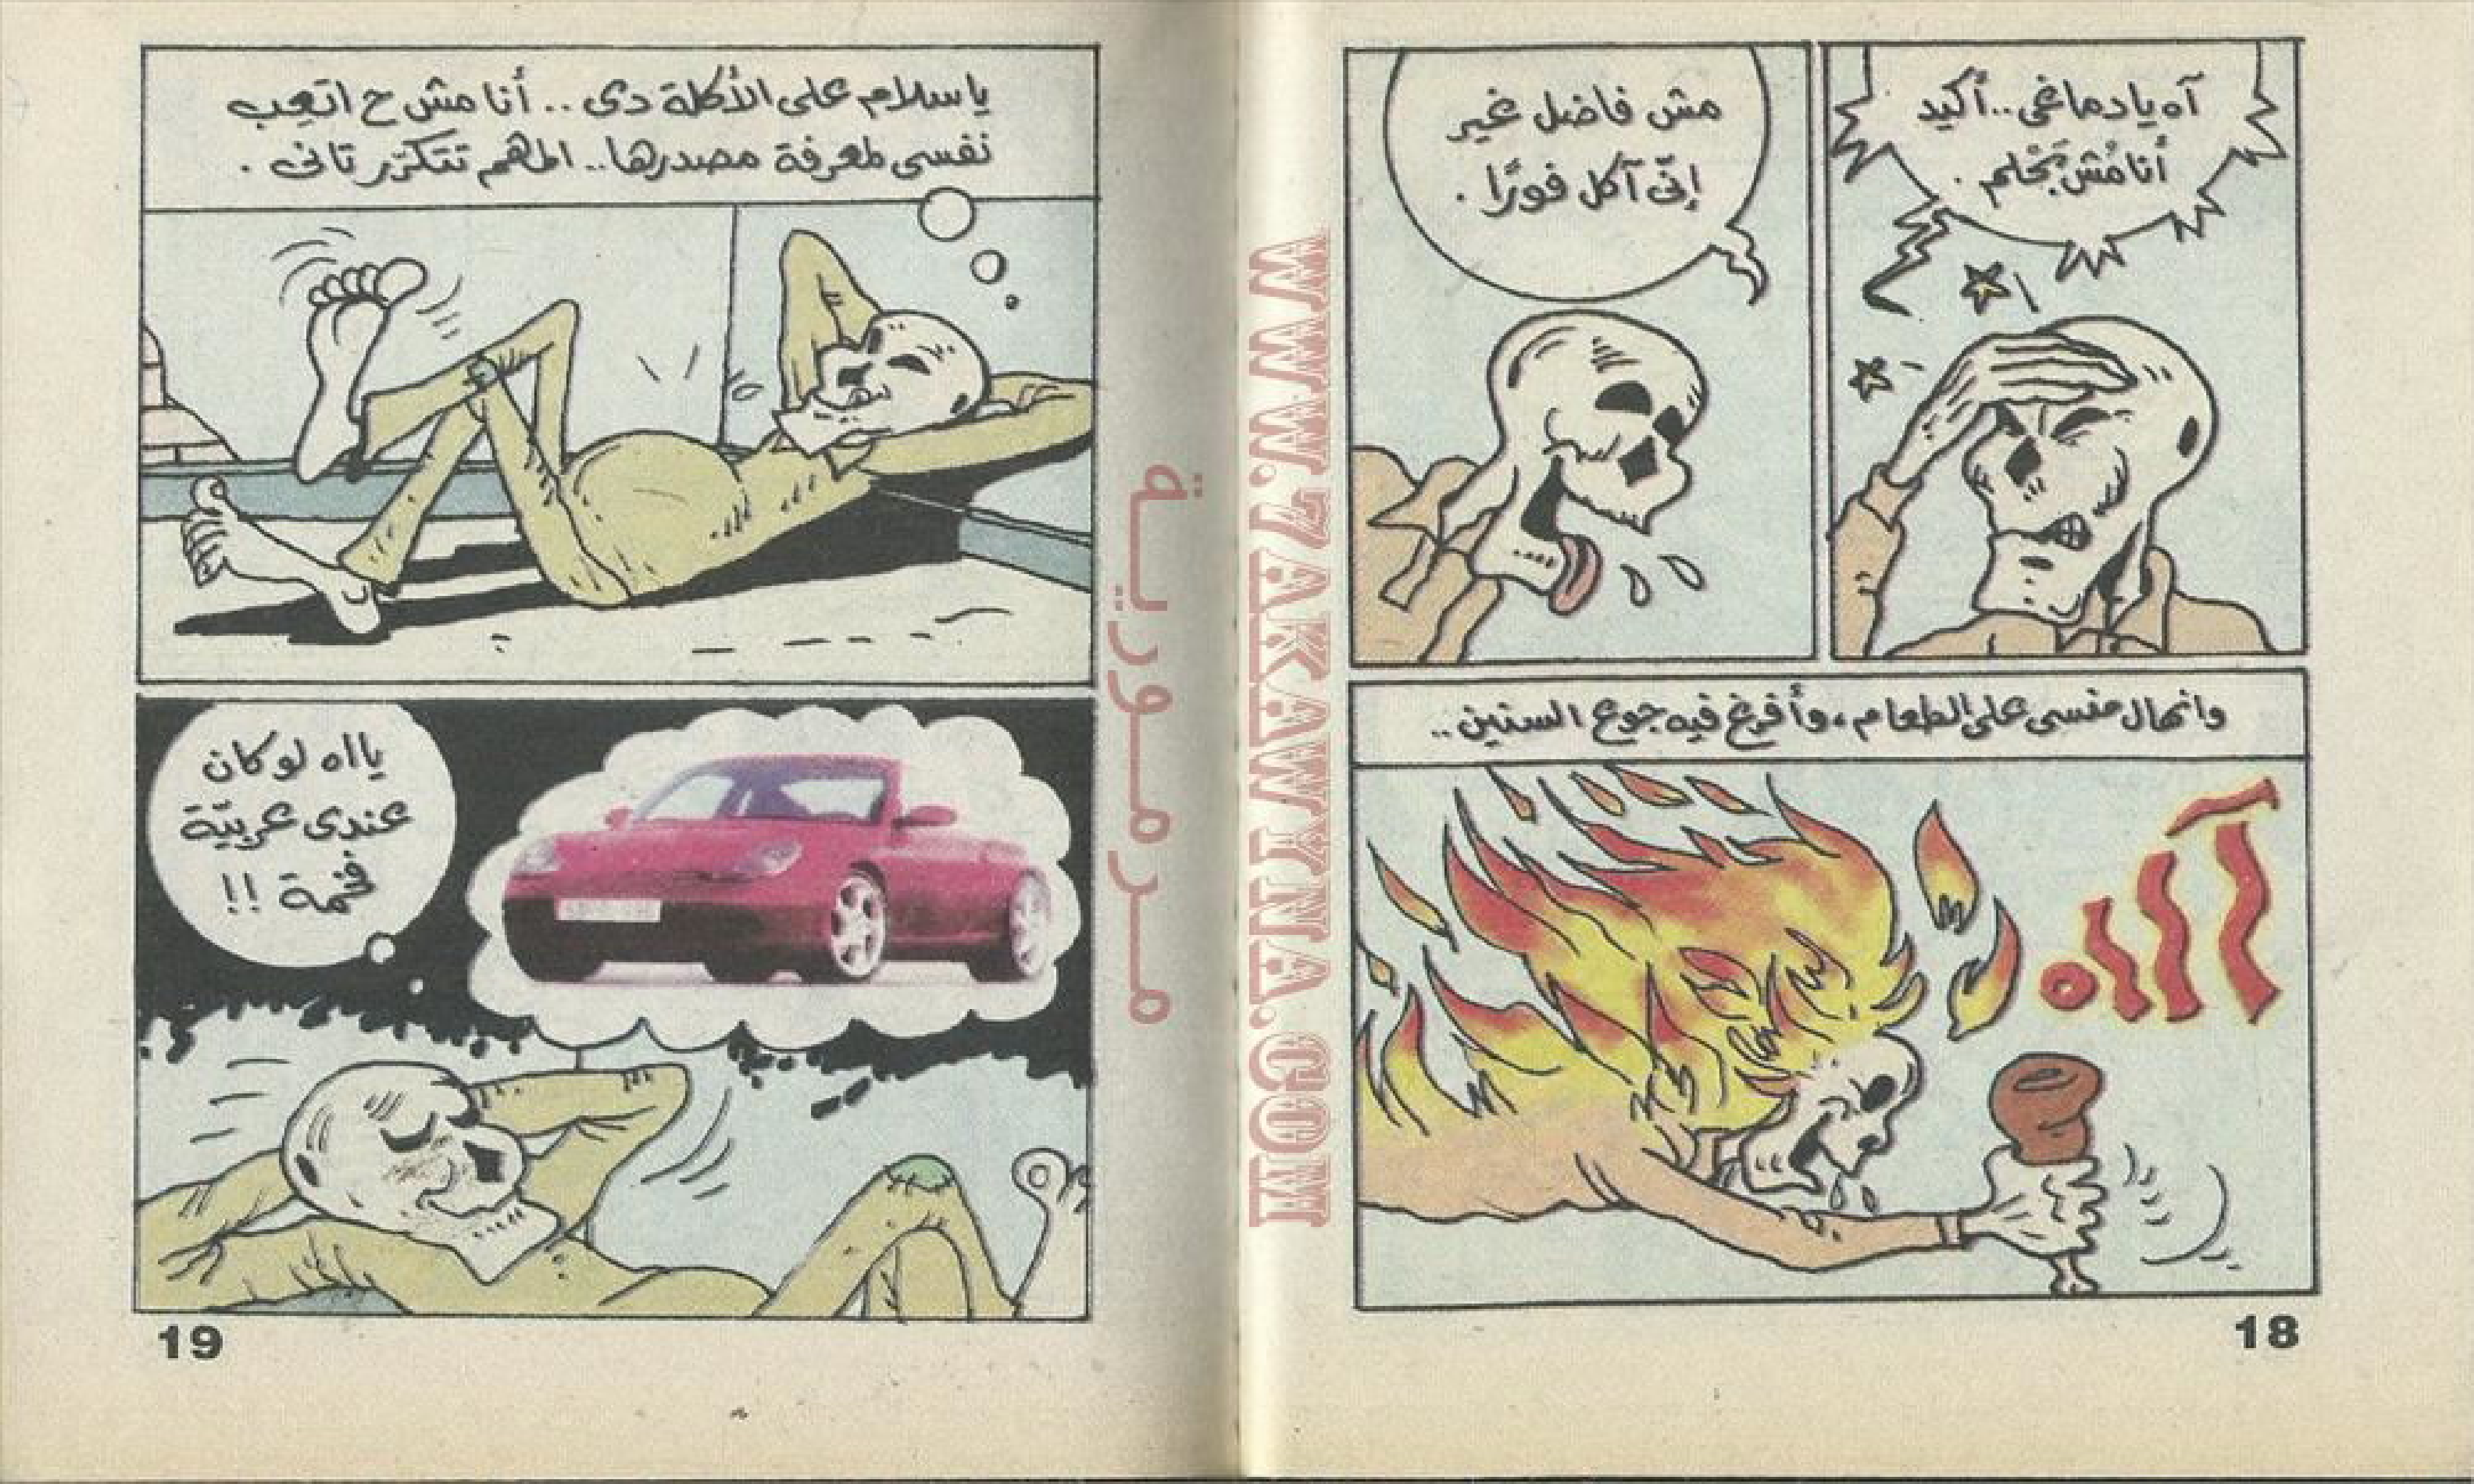 آه يا دماغى.. أكيد
أنا مُش بَحْلم .
مش فاضل غير
إنّى آكل فورًا .
وانهال منسى على الطعام، وأفرغ فيه جوع السنين ..
آااه
18
يا سلام على الأكلة دى .. أنا مش ح اتعِب
نفسى لمعرفة مصدرها.. المهم تتكرّر تانى .
يااه لو كان
عندى عربيّة
فخمة !!
19
مرمورية
WWW.7AKAWYNA.COM